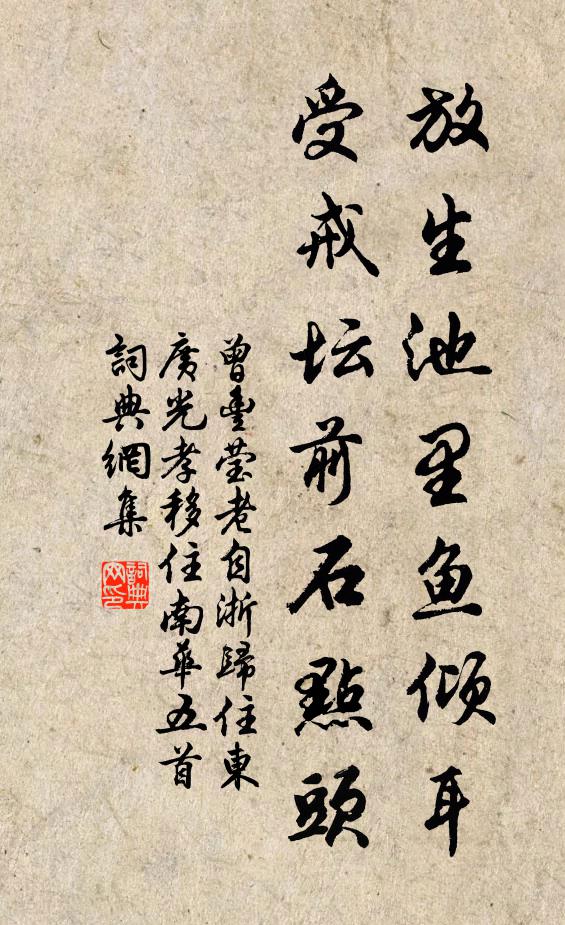 放生池里鱼倾耳
受戒坛前石點頭
曾豊莹老自浙歸住東
廣光孝移住南華五首
詞典網集
詞典网印